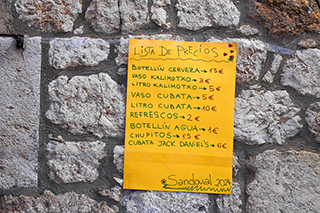 LISTA DE PRECIOS
BOTELLÍN CERVEZA → 1'5€
VASO KALIMOTXO → 3€
LITRO KALIMOTXO → 5€
VASO CUBATA → 5€
LITRO CUBATA → 10€
REFRESCOS → 2€
BOTELLÍN AGUA → 1€
CHUPITOS → 1'5€
CUBATA JACK DANIEL'S → 6€
Sandoval 2024